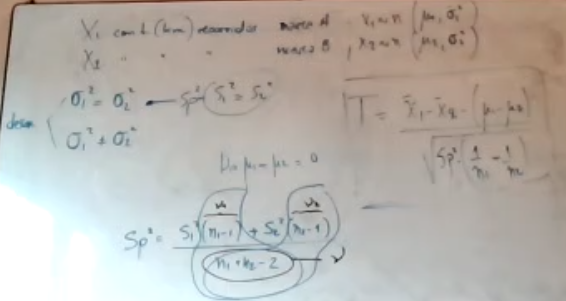 X₁ cant. (km) recorridos marca A, X₁ ~ n (μ₁, σ₁²)
X₂ " " " marca B, X₂ ~ n (μ₂, σ₂²)
σ₁² = σ₂² — Sp² S₁² = S₂²
σ₁² ≠ σ₂²
T = x̄₁ - x̄₂ - (μ₁ - μ₂) / √Sp² · (1/n₁ - 1/n₂)
μ₁ - μ₂ = 0
ν₁ ν₂
Sp² = S₁² (n₁-1) + S₂² (n₂-1) / n₁ + n₂ - 2 — ν